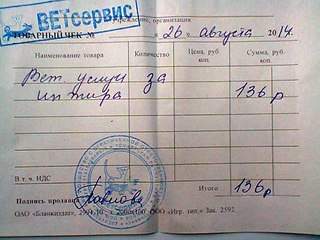 ВЕТсервис
Учреждение, организация
ТОВАРНЫЙ ЧЕК №
« 26 » августа 2014.
Наименование товара Количество Цена, руб. коп. Сумма, руб. коп.
Вет. услуги за
136 р
В т. ч. НДС
Подпись продавца Итого 136р
ОАО "Бланкиздат", 2591